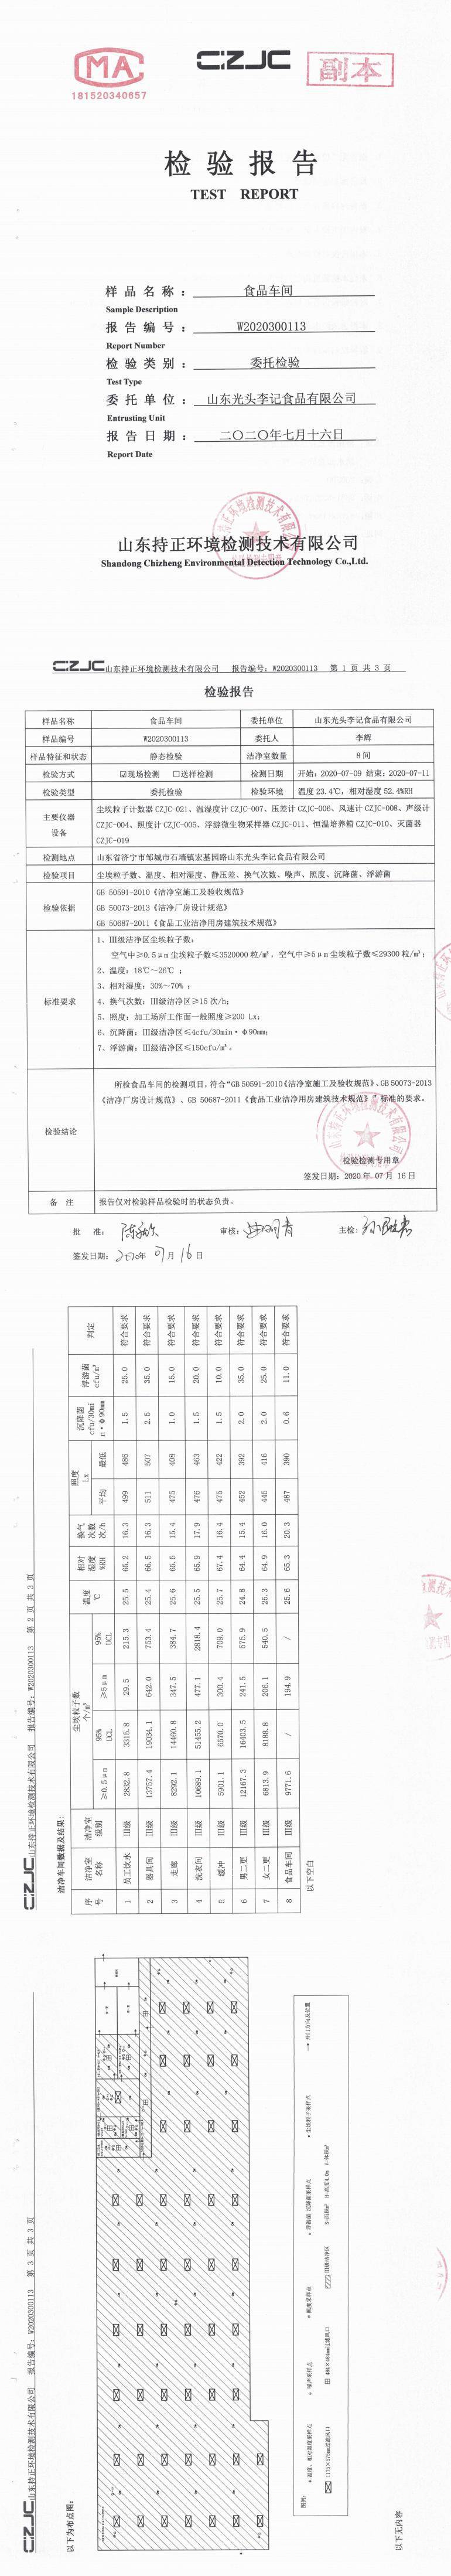 MA
181520340657
CZJC
副本
检验报告
TEST REPORT
样品名称： 食品车间
Sample Description
报告编号： W2020300113
Report Number
检验类别： 委托检验
Test Type
委托单位： 山东光头李记食品有限公司
Entrusting Unit
报告日期： 二〇二〇年七月十六日
Report Date
山东持正环境检测技术有限公司
Shandong Chizheng Environmental Detection Technology Co.,Ltd.
CZJC 山东持正环境检测技术有限公司 报告编号：W2020300113 第 1 页 共 3 页
检验报告
样品名称 食品车间 委托单位 山东光头李记食品有限公司
样品编号 W2020300113 委托人 李辉
样品特征和状态 静态检验 洁净室数量 8 间
检验方式 ☑现场检测 □送样检测 检测日期 开始：2020-07-09 结束：2020-07-11
检验类型 委托检验 检验环境 温度 23.4℃，相对湿度 52.4%RH
主要仪器设备 尘埃粒子计数器 CZJC-021、温湿度计 CZJC-007、压差计 CZJC-006、风速计 CZJC-008、声级计
CZJC-004、照度计 CZJC-005、浮游微生物采样器 CZJC-011、恒温培养箱 CZJC-010、灭菌器
CZJC-019
检测地点 山东省济宁市邹城市石墙镇宏基园路山东光头李记食品有限公司
检验项目 尘埃粒子数、温度、相对湿度、静压差、换气次数、噪声、照度、沉降菌、浮游菌
检验依据 GB 50591-2010《洁净室施工及验收规范》
GB 50073-2013《洁净厂房设计规范》
GB 50687-2011《食品工业洁净用房建筑技术规范》
标准要求 1、Ⅲ级洁净区尘埃粒子数：
空气中≥0.5μm 尘埃粒子数≤3520000 粒/m³，空气中≥5μm 尘埃粒子数≤29300 粒/m³；
2、温度：18℃～26℃；
3、相对湿度：30%～70%；
4、换气次数：Ⅲ级洁净区≥15 次/h；
5、照度：加工场所工作面一般照度≥200 Lx；
6、沉降菌：Ⅲ级洁净区≤4cfu/30min·φ90mm；
7、浮游菌：Ⅲ级洁净区≤150cfu/m³。
检验结论 所检食品车间的检测项目，符合“GB 50591-2010《洁净室施工及验收规范》、GB 50073-2013
《洁净厂房设计规范》、GB 50687-2011《食品工业洁净用房建筑技术规范》”标准的要求。
检验检测专用章
签发日期：2020 年 07 月 16 日
备注 报告仅对检验样品检验时的状态负责。
批 准： 审核： 主检：
签发日期：2020年 07 月 16 日
CZJC 山东持正环境检测技术有限公司 报告编号：W2020300113 第 2 页 共 3 页
洁净车间数据及结果：
序号 洁净室名称 洁净室级别 尘埃粒子数 个/m³ 温度 ℃ 相对湿度 %RH 换气次数 次/h 照度 Lx 沉降菌 cfu/30min·Φ90mm 浮游菌 cfu/m³ 判定
≥0.5μm 95% UCL ≥5μm 95% UCL 平均 最低
1 员工饮水 Ⅲ级 2832.8 3315.8 29.5 215.3 25.5 65.2 16.3 499 486 1.5 25.0 符合要求
2 器具间 Ⅲ级 13757.4 19034.1 642.0 753.4 25.4 66.5 16.3 511 507 2.5 35.0 符合要求
3 走廊 Ⅲ级 8292.1 14460.8 347.5 384.7 25.6 65.5 15.4 475 408 1.0 15.0 符合要求
4 洗衣间 Ⅲ级 10689.1 51455.2 477.1 2818.4 25.5 65.9 17.9 476 463 1.5 20.0 符合要求
5 缓冲 Ⅲ级 5901.1 6570.0 300.4 709.0 25.7 67.4 16.4 475 422 1.5 10.0 符合要求
6 男二更 Ⅲ级 12167.3 16403.5 241.5 575.9 24.8 64.4 15.4 452 392 2.0 35.0 符合要求
7 女二更 Ⅲ级 6813.9 8188.8 206.1 540.5 25.3 64.9 16.0 445 416 2.0 25.0 符合要求
8 食品车间 Ⅲ级 9771.6 / 194.9 / 25.6 65.3 20.3 487 390 0.6 11.0 符合要求
以下空白
CZJC 山东持正环境检测技术有限公司 报告编号：W2020300113 第 3 页 共 3 页
以下为布点图：
图例： 温度、相对湿度采样点 噪声采样点 照度采样点 浮游菌 沉降菌采样点 尘埃粒子采样点 开门方向及位置
1175×575mm过滤风口 484×484mm过滤风口 Ⅲ级洁净区
以下无内容